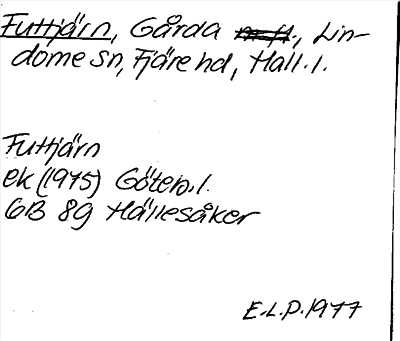 Futtjärn, Gårda m.fl., Lin-
dome sn, Fjäre hd, Hall. l.
Futtjärn
ek (1975) Göteb. l.
6B 8g Hällesåker
E.L.P. 1977